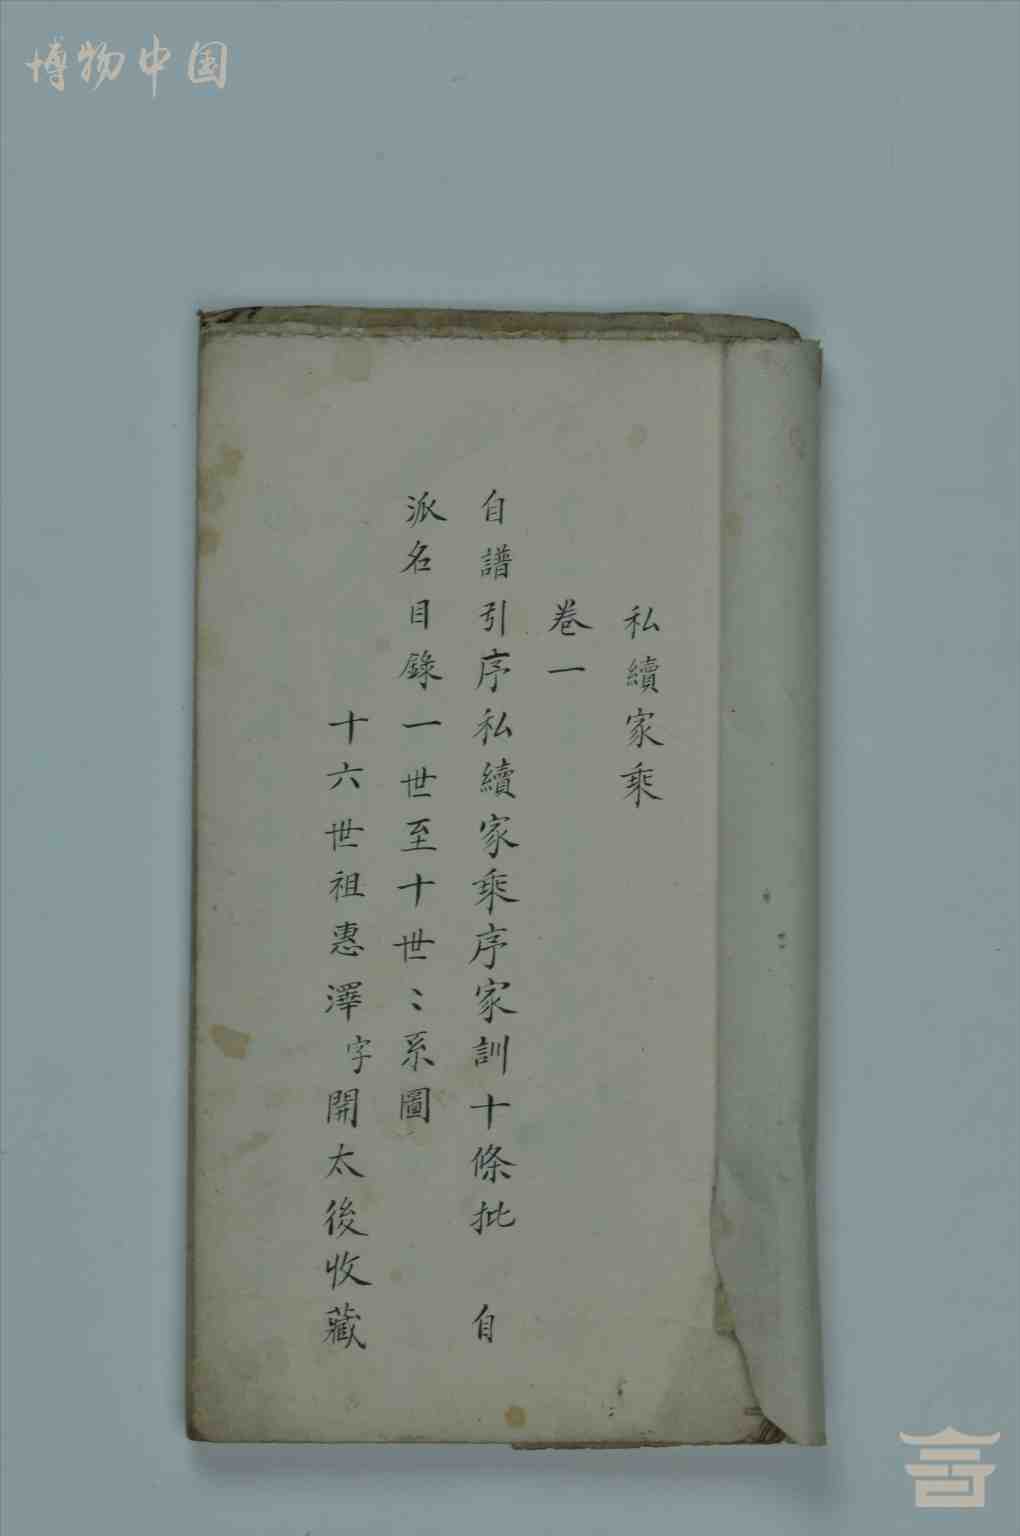 博物中国
私續家乘
卷一
自譜引序私續家乘序家訓十條批　自
派名目錄一世至十世〻系圖
十六世祖惠澤字開太後收藏